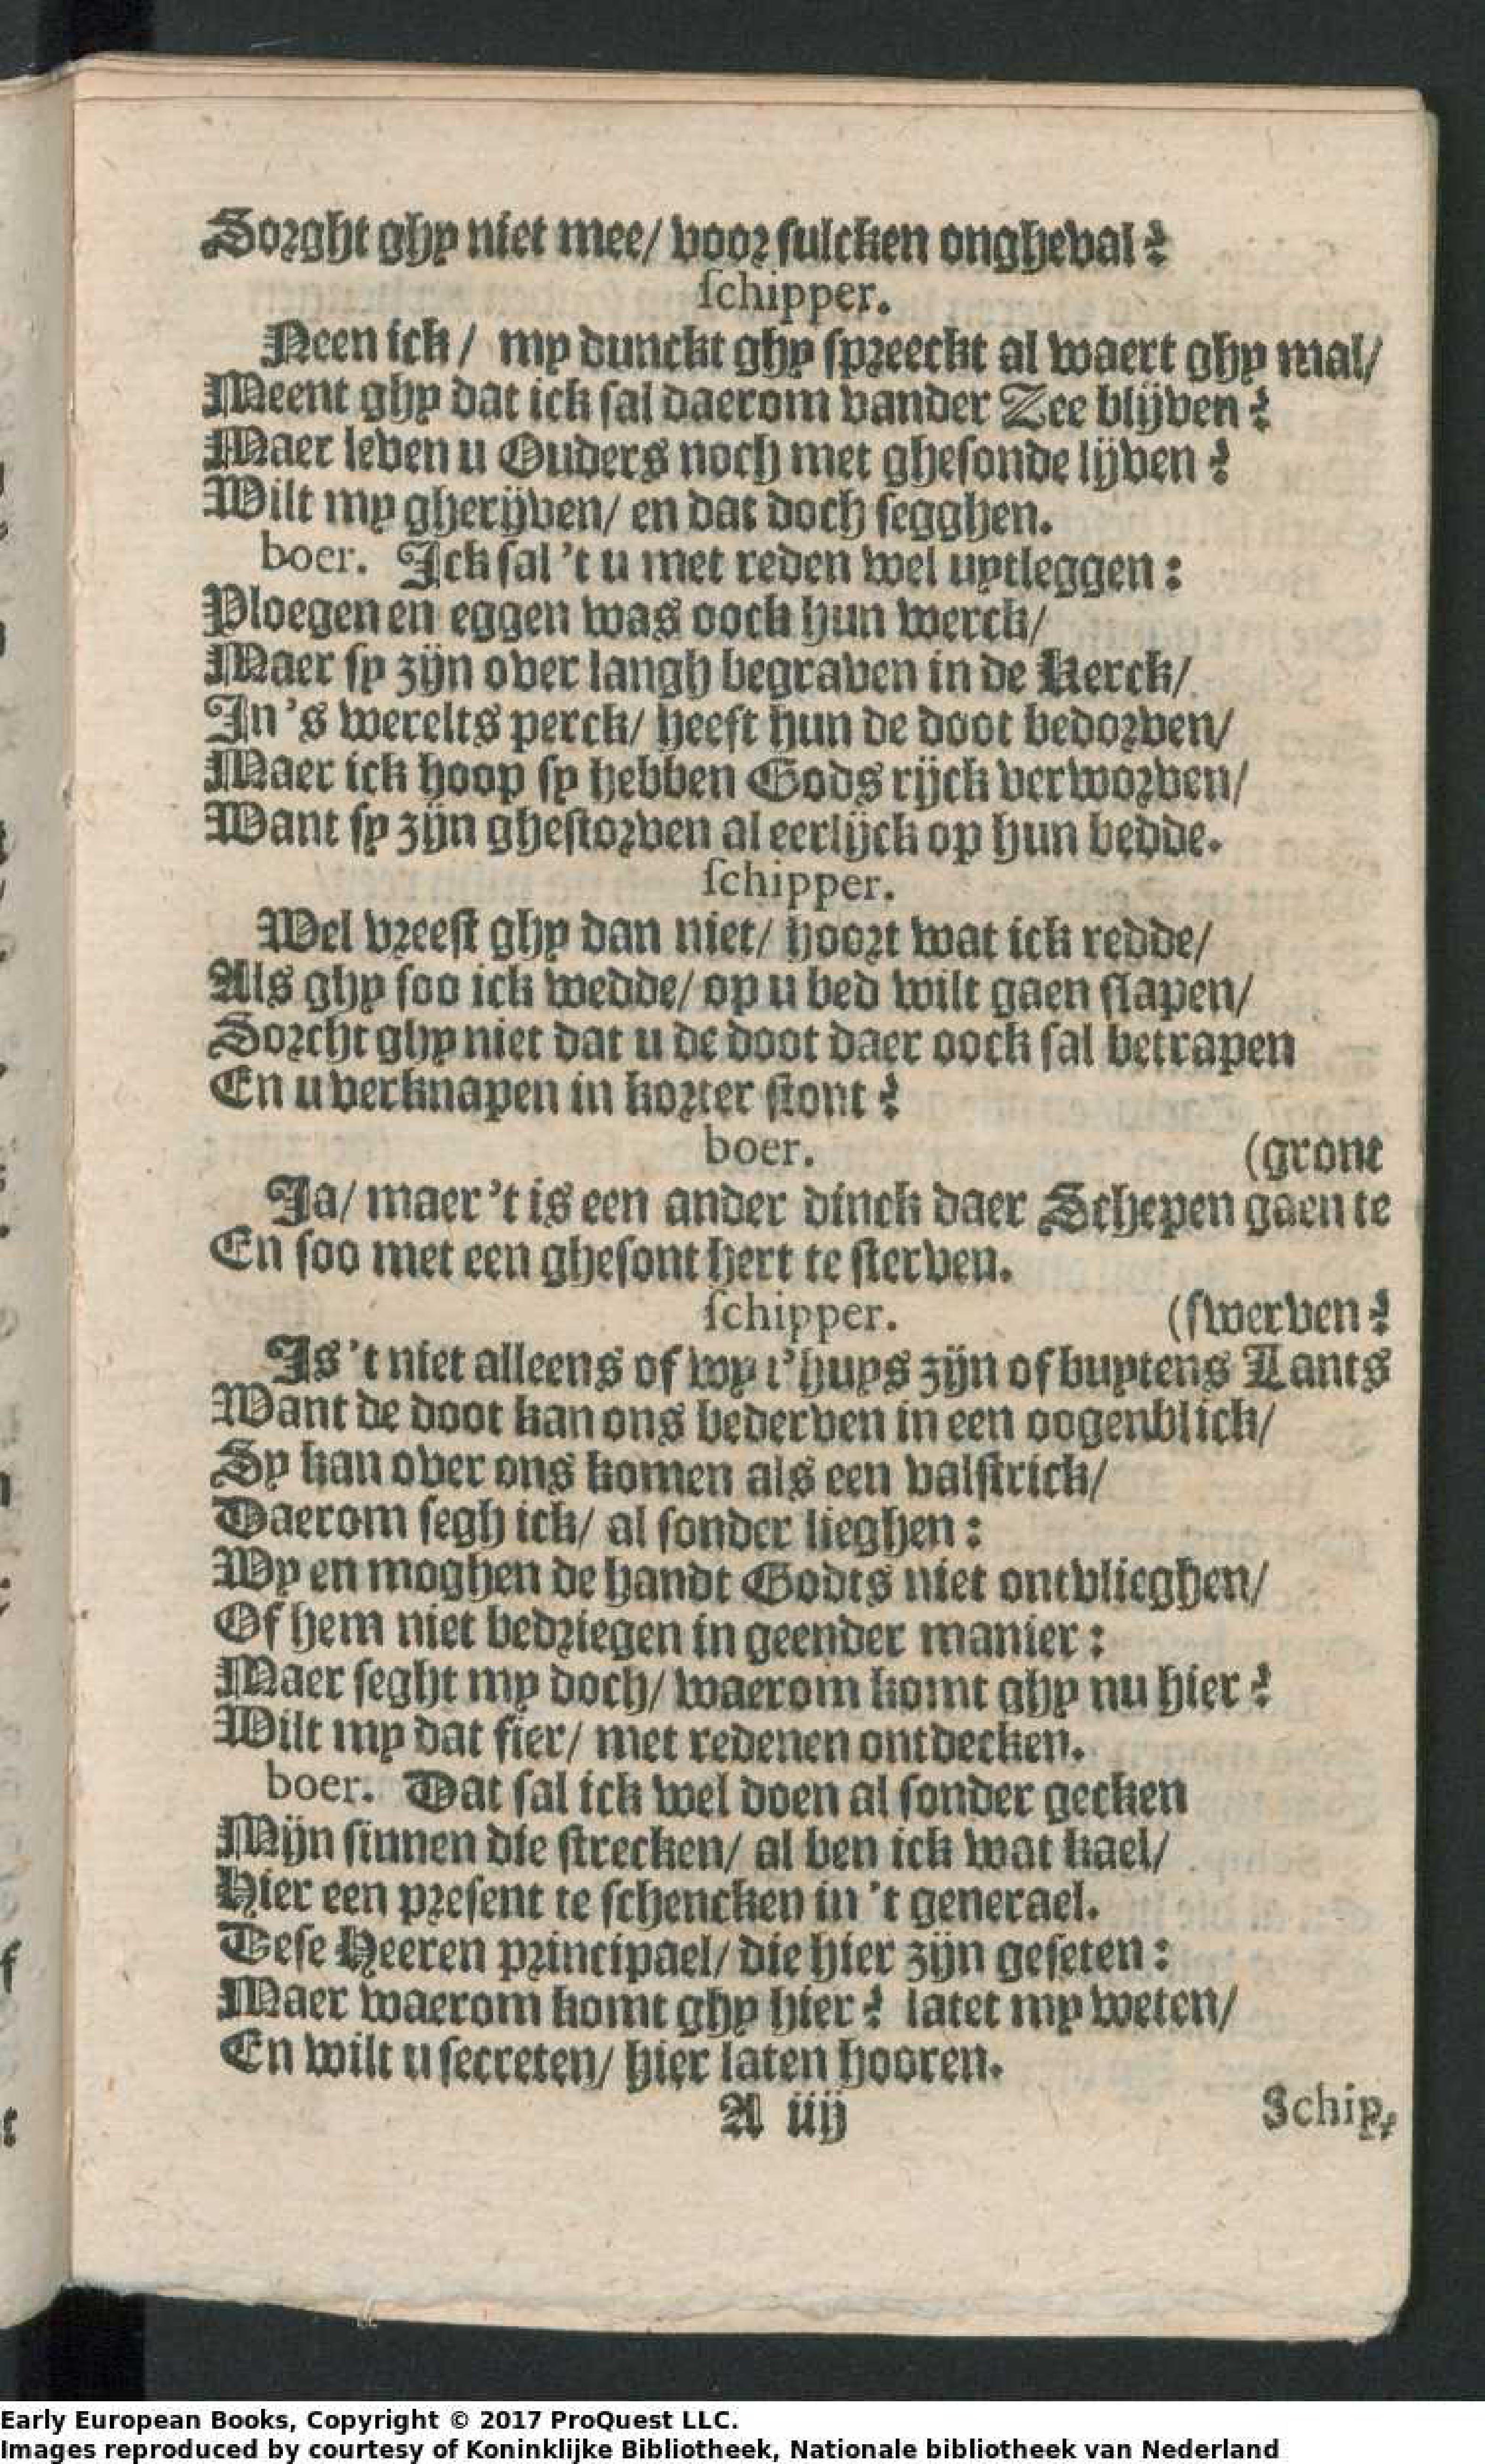 Sorght ghy niet mee/ voor sulcken ongheval?
schipper.
Neen ick/ my dunckt ghy spreeckt al waert ghy mal/
Meent ghy dat ick sal daerom vander Zee blijven?
Maer leven u Ouders noch met ghesonde lijven?
Wilt my gherijven/ en dat doch segghen.
boer. Ick sal 't u met reden wel uytleggen:
Ploegen en eggen was oock hun werck/
Maer sy zijn over langh begraven in de Kerck/
In 's werelts perck/ heeft hun de doot bedorven/
Maer ick hoop sy hebben Gods rijck verworven/
Want sy zijn ghestorven al eerlijck op hun bedde.
schipper.
Wel vreest ghy dan niet/ hoort wat ick redde/
Als ghy soo ick wedde/ op u bed wilt gaen slapen/
Sorcht ghy niet dat u de doot daer oock sal betrapen
En u verknapen in korter stont?
boer. (gront
Ja/ maer 't is een ander dinck daer Schepen gaen te
En soo met een ghesont hert te sterven.
schipper. (swerven?
Is 't niet alleens of wy t'huys zijn of buytens Lants
Want de doot kan ons bederven in een oogenblick/
Sy kan over ons komen als een valstrick/
Daerom segh ick/ al sonder lieghen:
Wy en moghen de handt Godts niet ontvlieghen/
Of hem niet bedriegen in geender manier:
Maer seght my doch/ waerom komt ghy nu hier?
Wilt my dat fier/ met redenen ontdecken.
boer. Dat sal ick wel doen al sonder gecken
Mijn sinnen die strecken/ al ben ick wat kael/
Hier een present te schencken in 't generael.
Dese Heeren principael/ die hier zijn geseten:
Maer waerom komt ghy hier? latet my weten/
En wilt u secreten/ hier laten hooren.
A iiij Schip.
Early European Books, Copyright © 2017 ProQuest LLC.
Images reproduced by courtesy of Koninklijke Bibliotheek, Nationale bibliotheek van Nederland